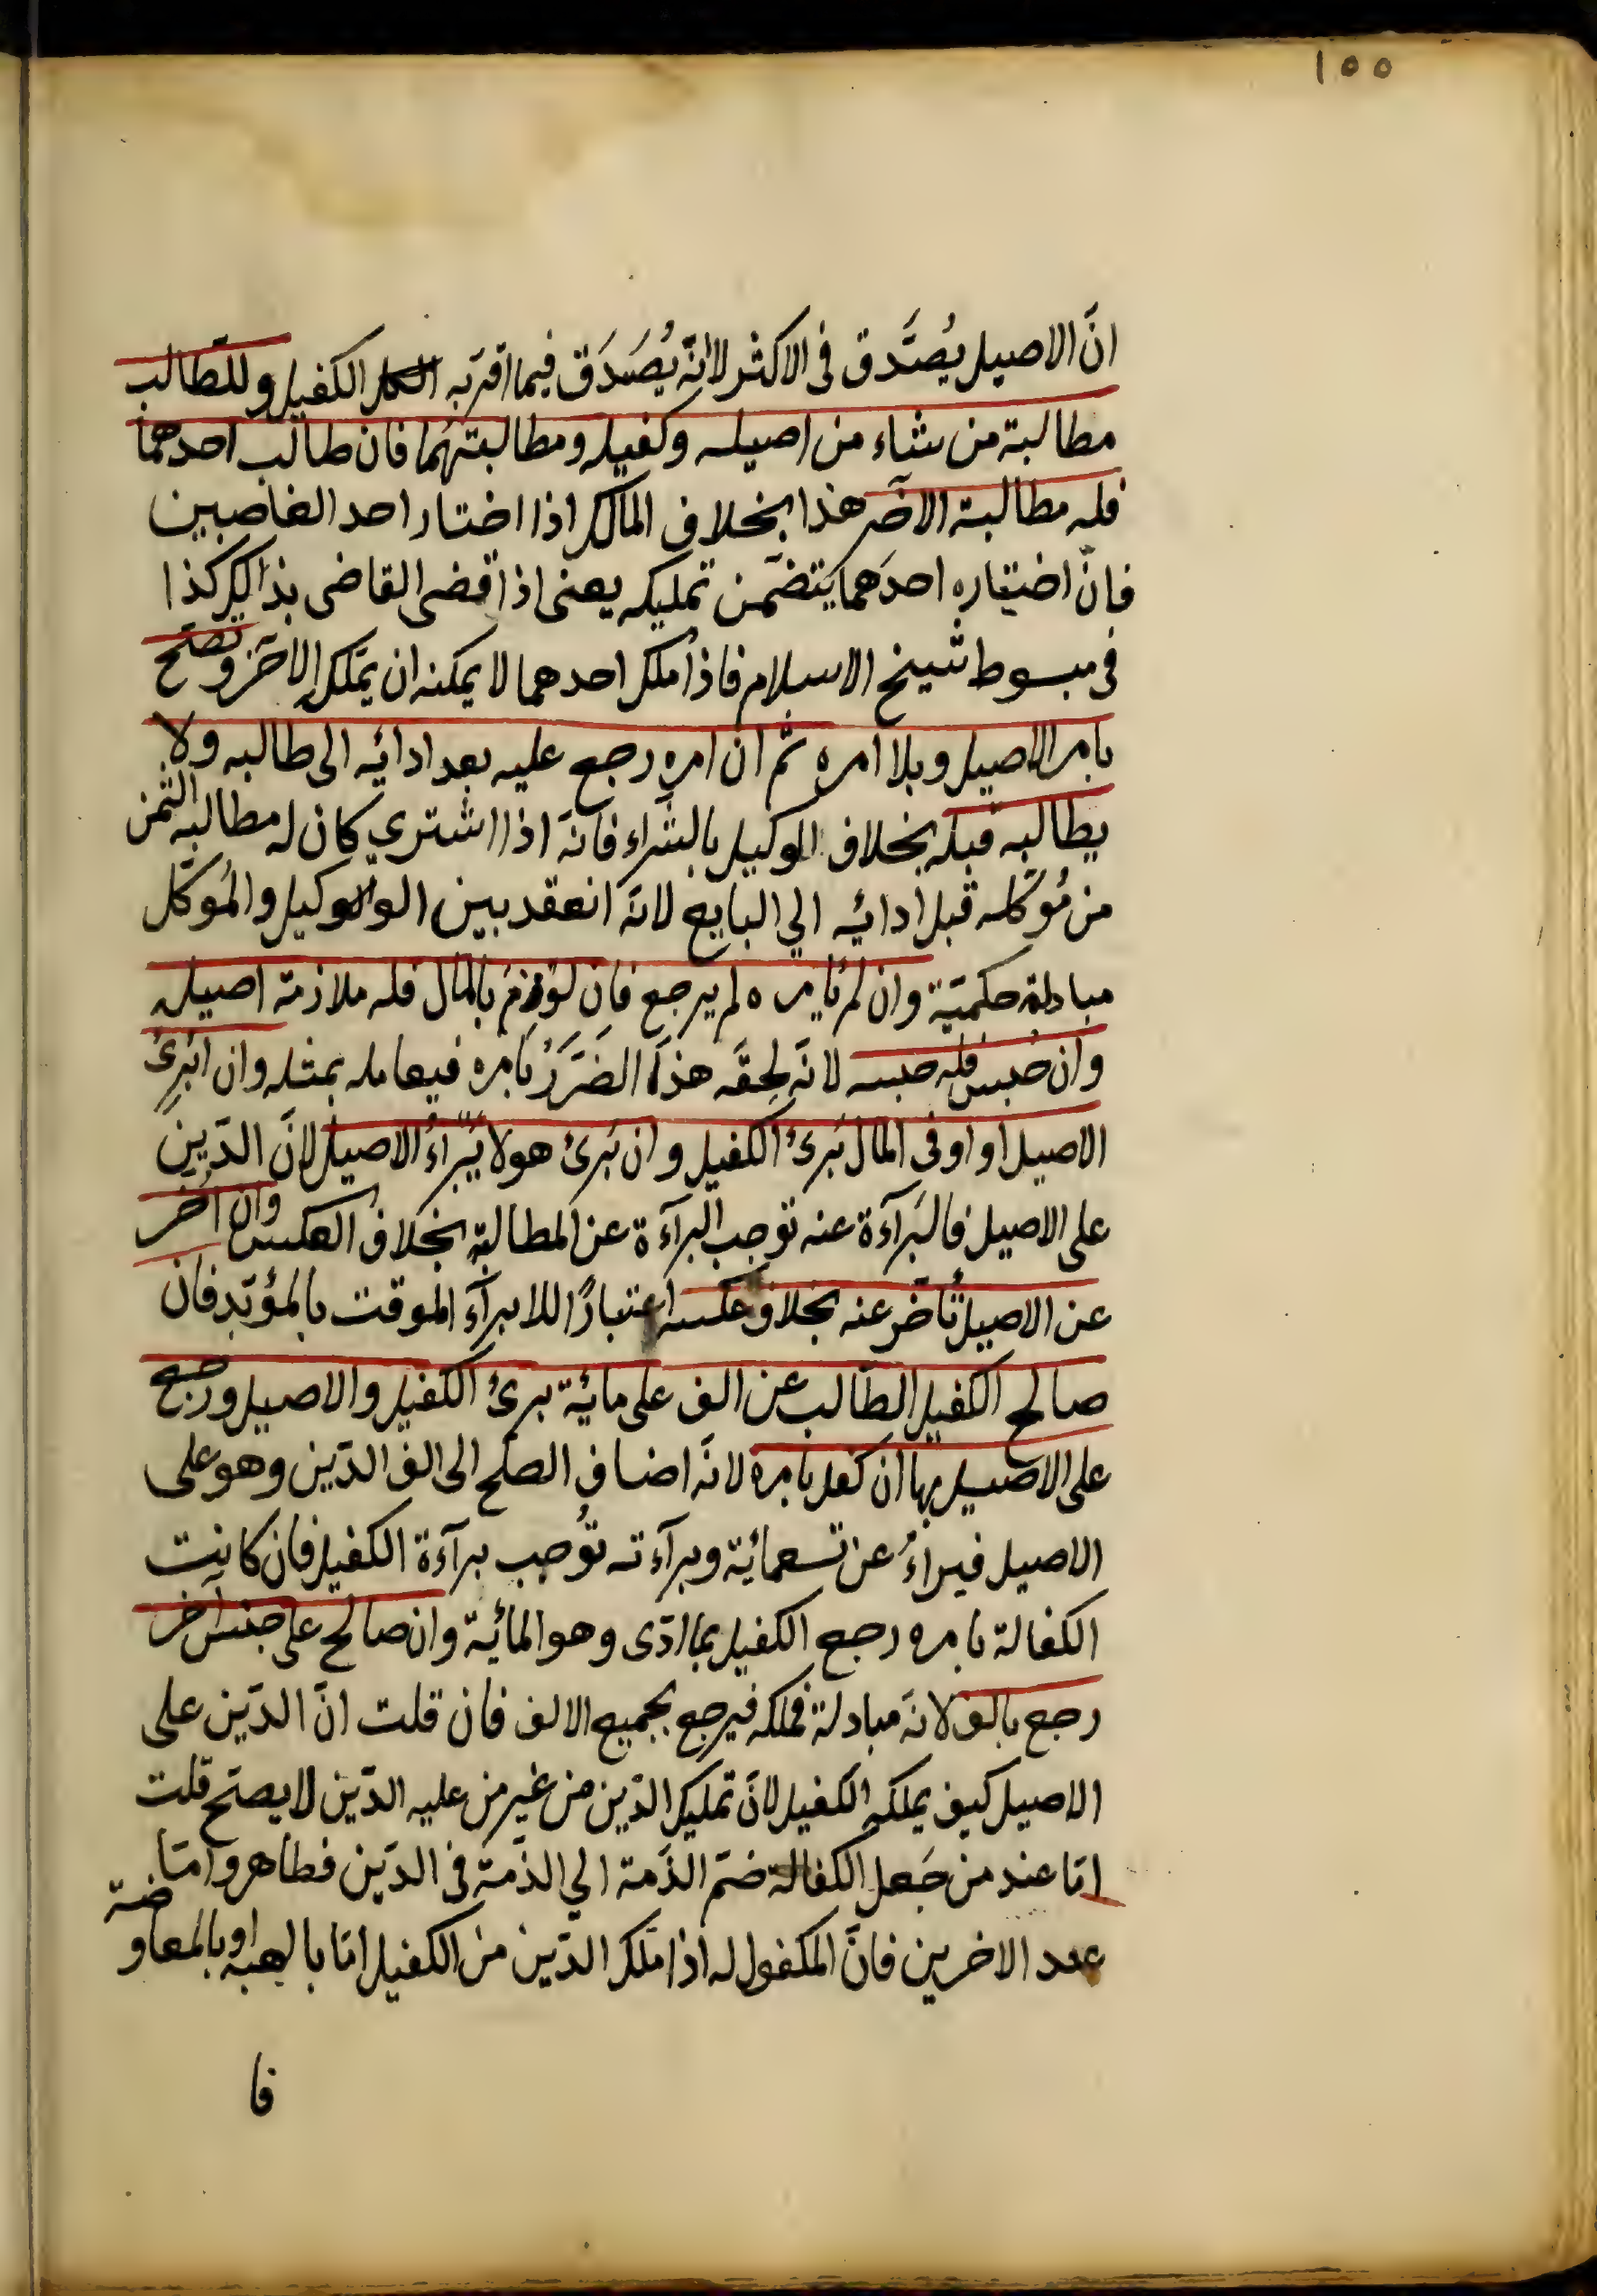 ١٥٥
انّ الاصيل يُصَّدق فى الاكثر لانّه يُصَدَق فيما اقرّ به الكفيل وللطّالب
مطالبة من شاء من اصيله وكفيله ومطالبتهُما فان طالب احدهما
فله مطالبة الآخر هذا بخلاف المالك اذا اختار احد الغاصبين
فانّ اختياره احدَهما يتضمّن تمليكه يعنى اذا قضى القاضى بذالك كذا
فى مبسوط شيخ الاسلام فاذا ملك احدهما لا يمكنه ان يملك الاخر وتصحّ
بامر الاصيل وبلا امره ثمّ ان امره رجع عليه بعد ادائه الى طالبه ولا
يطالبه قبله بخلاف الوكيل بالشّراء فانّه اذا اشتري كان له مطالبه الثمن
من مُوكّله قبل ادائه الي البايع لانّه انعقد بين الوكيل والمُوكّل
مبادلة حكميّة وان لم يامره لم يرجع فان لوزم بالمال فله ملازمة اصيله
وان حُبس فله حبسه لانّه لحقّه هذا الضَرَرُ بامره فيعامله بمثله وان ابُرئ
الاصيل او اوفى المال بَرئ الكفيل وان بَرئ هو لا يَبراءُ الاصيل لانّ الدّين
على الاصيل فالبَرآءة عنه توجب البرآءة عن المطالبة بخلاف العكس وان اُخر
عن الاصيل تأخّر عنه بخلاف عكسه اعتبارًا للابرآء الموقت بالمؤبّد فان
صالح الكفيل الطّالب عن الف على مائة برئ الكفيل والاصيل ورجع
على الاصيل بها ان كفل بامره لانّه اضاف الصلح الى الف الدّين وهو على
الاصيل فيبراءُ عن تسعمائة وبرآءته توُجب برآءة الكفيل فان كانت
الكفالة بامره رجع الكفيل بما ادّى وهو المائية وان صالح على جنس آخر
رجع بالف لانّه مبادلة فملكه فيرجع بجميع الالف فان قلت انّ الدّين على
الاصيل كيف يملكه الكفيل لانّ تمليك الدّين من غير من عليه الدّين لا يصحّ قلت
امّا عند من جَعل الكفالة ضمّ الذّمة الي الذّمة فى الدّين فظاهر وامّا
عند الاخرين فانّ المكفول له اذا ملّك الدّين من الكفيل امّا بالهبة او بالمعاوضة
فا